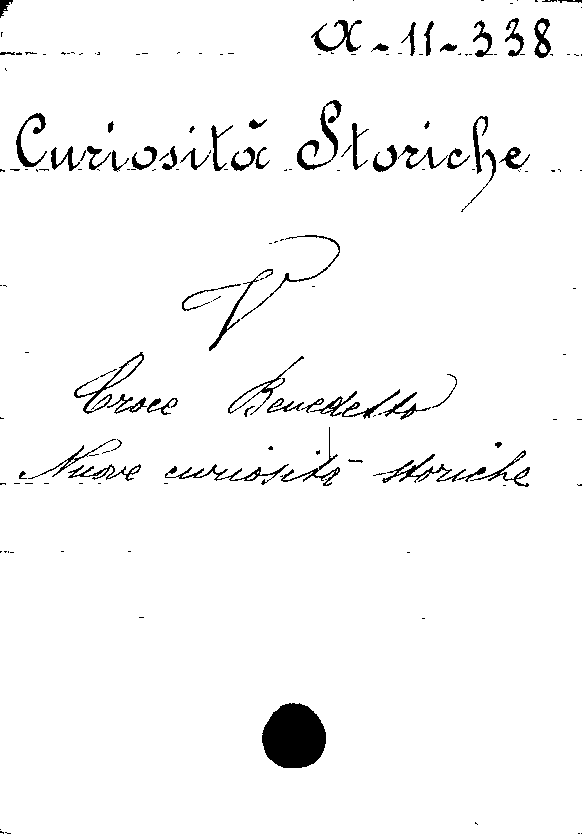 α-11-338
Curiosità Storiche
V
Croce Benedetto
Nuove curiosità storiche